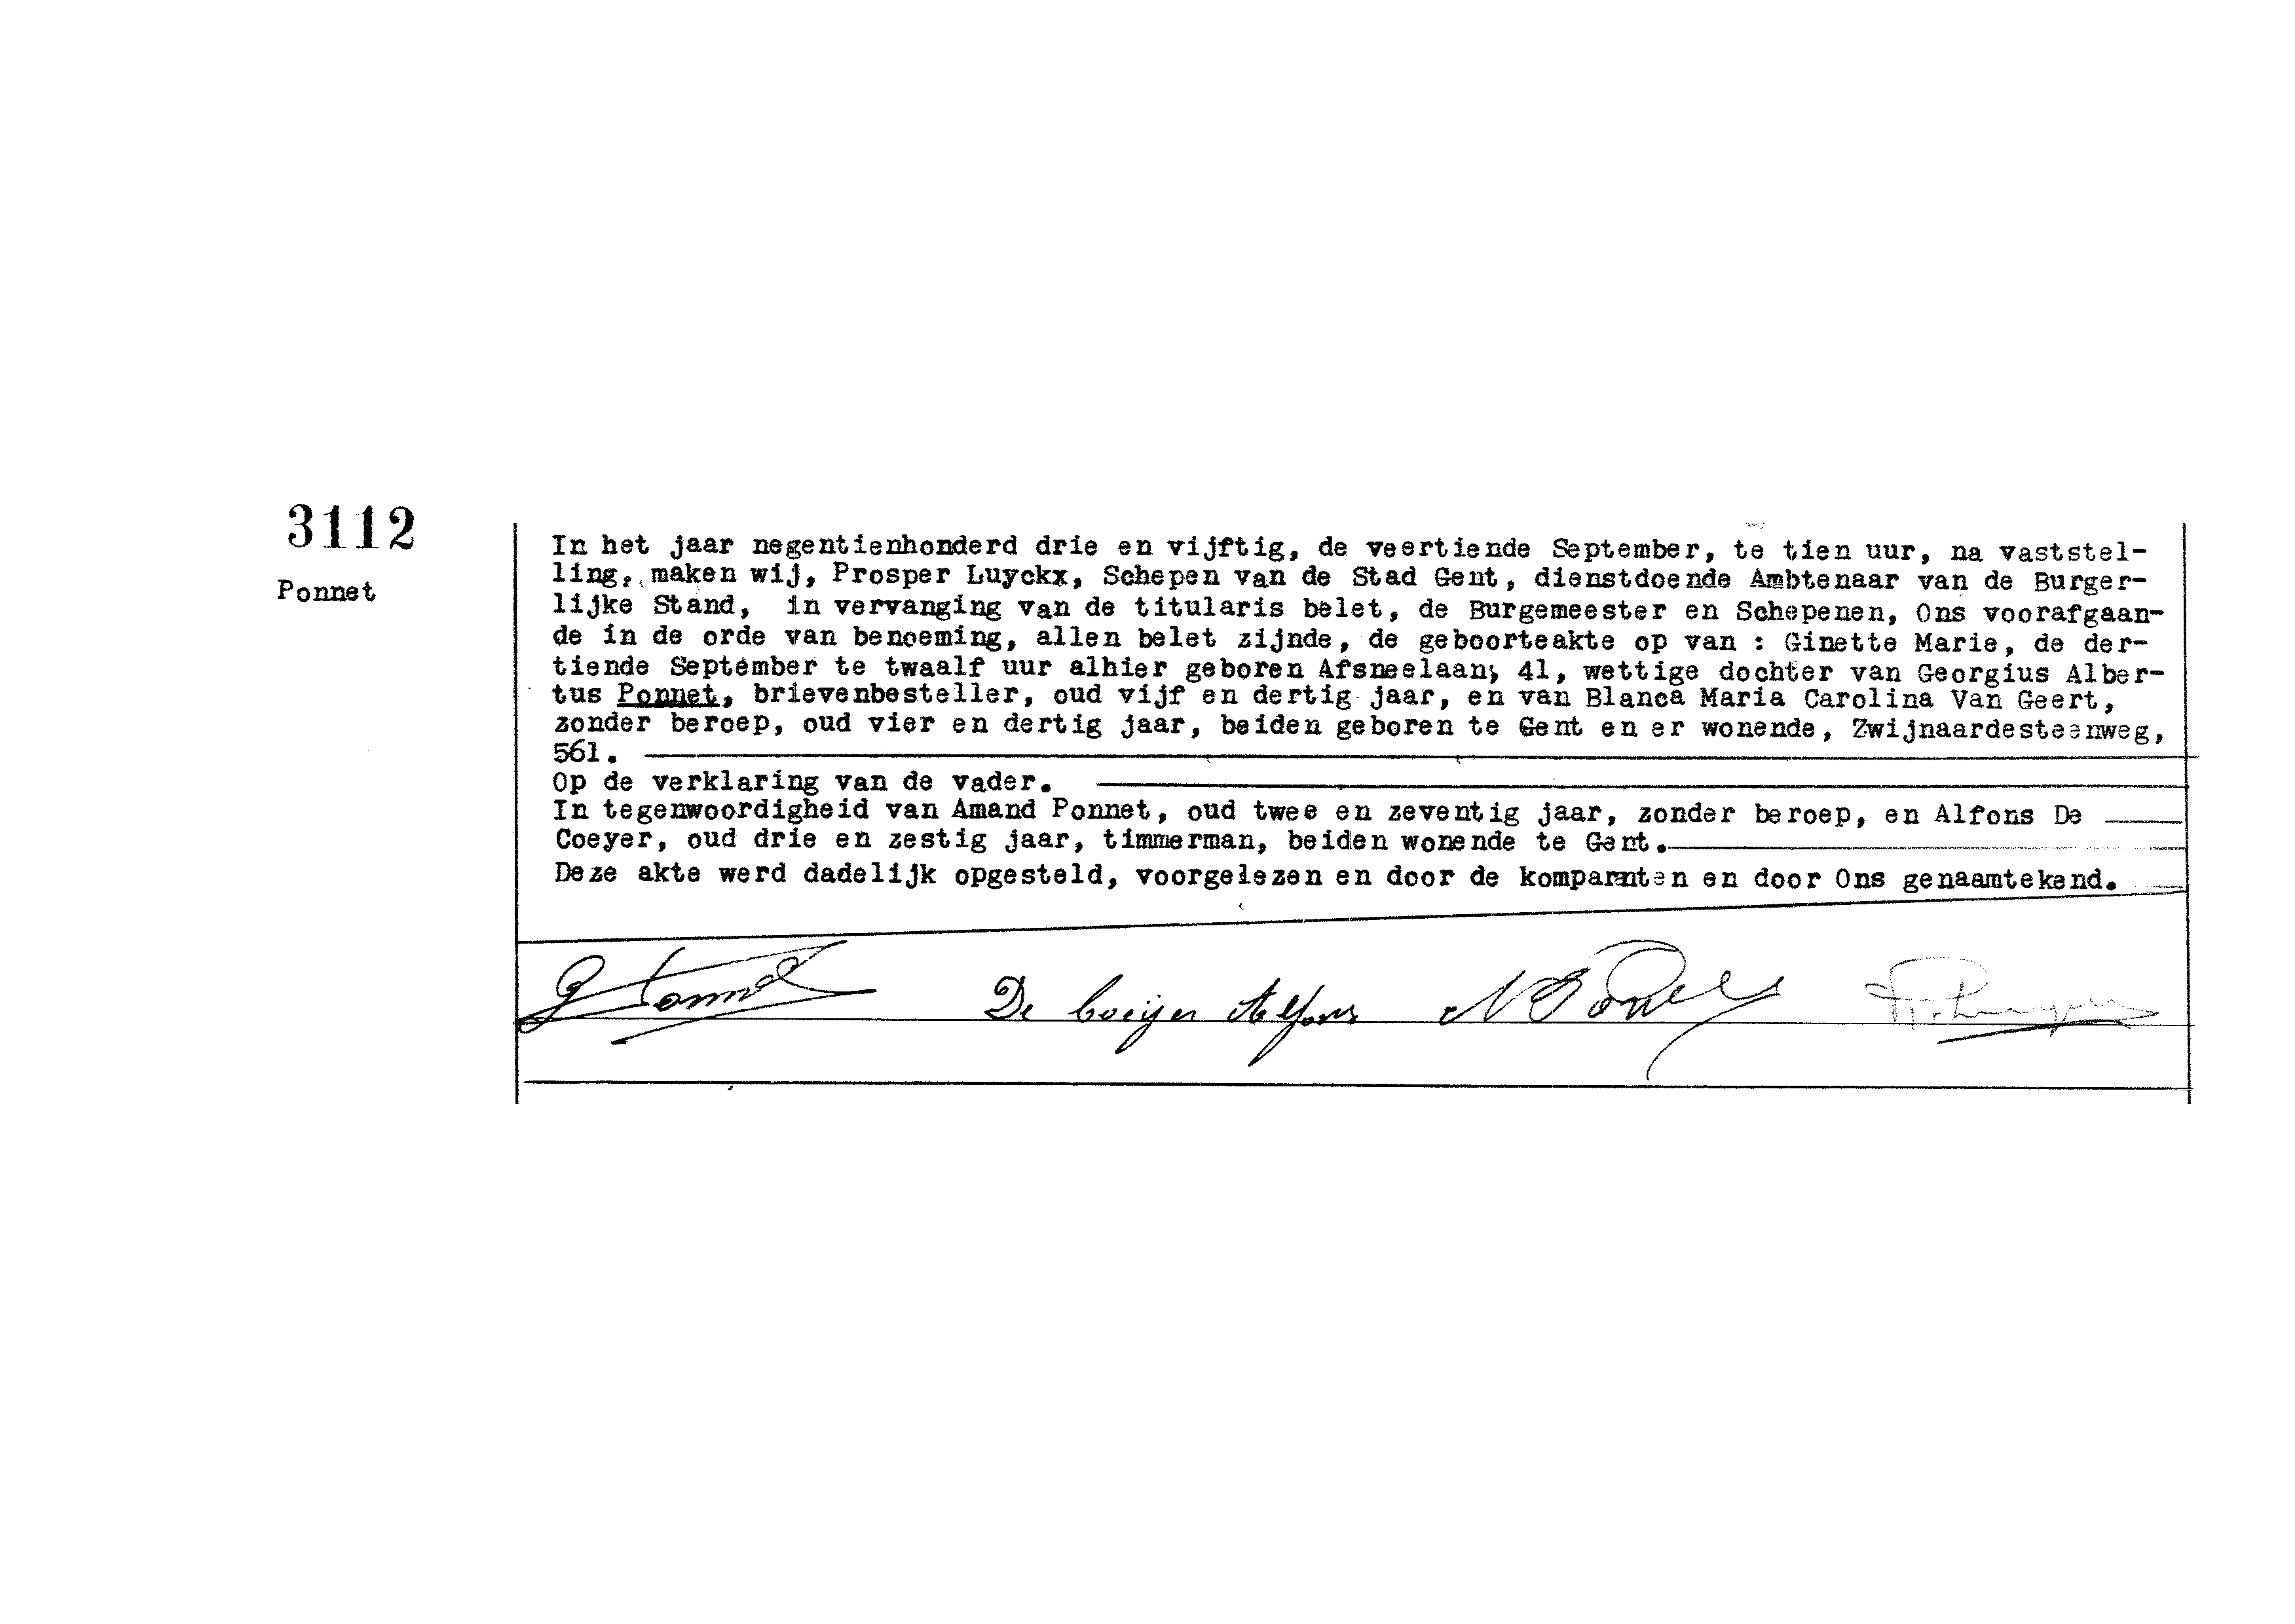 3112
Ponnet
In het jaar negentienhonderd drie en vijftig, de veertiende September, te tien uur, na vaststel-
ling, maken wij, Prosper Luyckx, Schepen van de Stad Gent, dienstdoende Ambtenaar van de Burger-
lijke Stand, in vervanging van de titularis belet, de Burgemeester en Schepenen, Ons voorafgaan-
de in de orde van benoeming, allen belet zijnde, de geboorteakte op van : Ginette Marie, de der-
tiende September te twaalf uur alhier geboren Afsneelaan, 41, wettige dochter van Georgius Alber-
tus Ponnet, brievenbesteller, oud vijf en dertig jaar, en van Blanca Maria Carolina Van Geert,
zonder beroep, oud vier en dertig jaar, beiden geboren te Gent en er wonende, Zwijnaardesteenweg,
561.
Op de verklaring van de vader.
In tegenwoordigheid van Amand Ponnet, oud twee en zeventig jaar, zonder beroep, en Alfons De
Coeyer, oud drie en zestig jaar, timmerman, beiden wonende te Gent.
Deze akte werd dadelijk opgesteld, voorgelezen en door de komparanten en door Ons genaamtekend.
De Coeijer Alfons